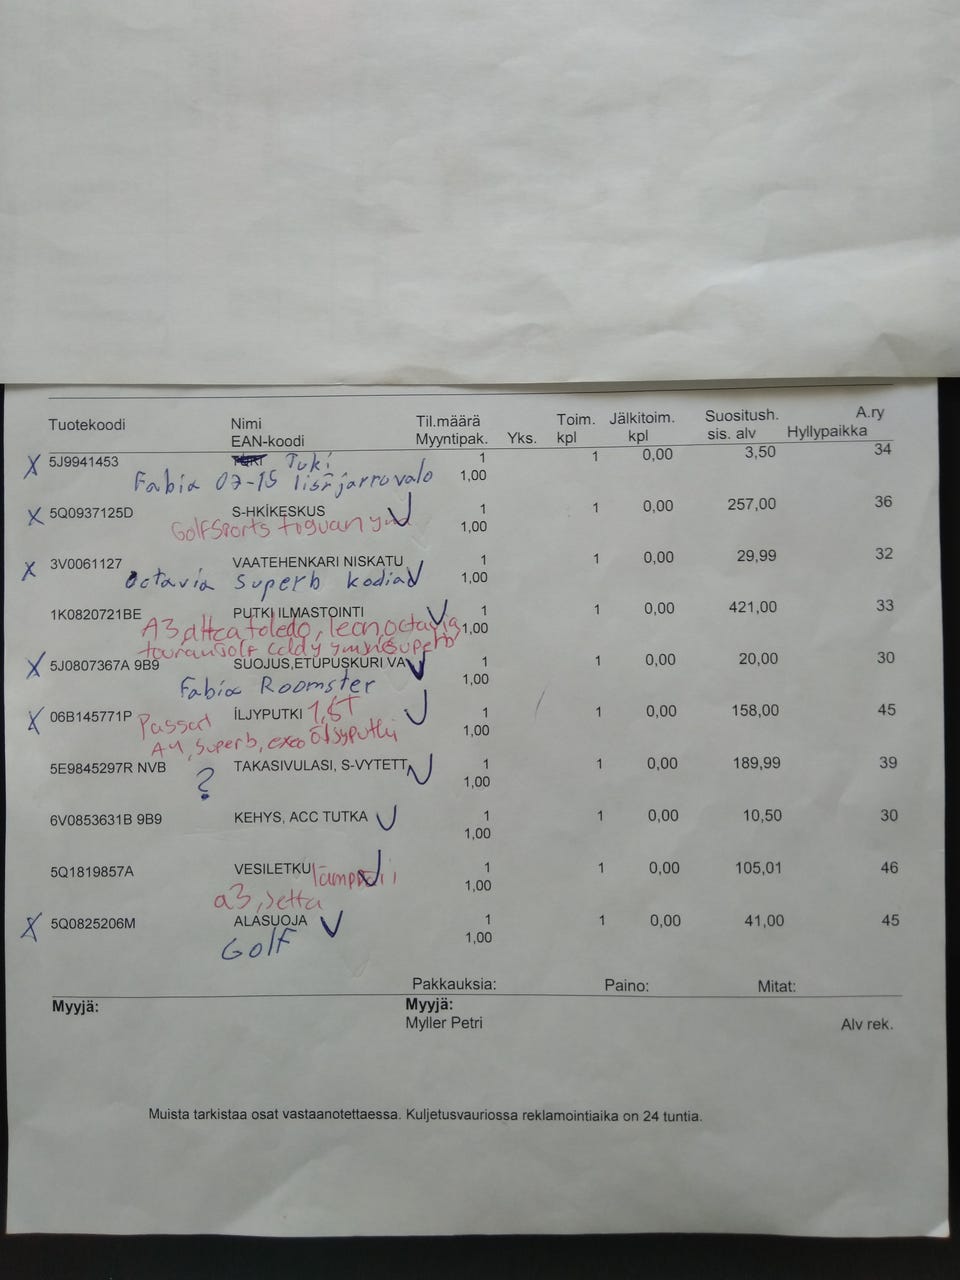 Tuotekoodi Nimi Til.määrä Toim. Jälkitoim. Suositush. A.ry
EAN-koodi Myyntipak. Yks. kpl kpl sis. alv Hyllypaikka
X 5J9941453 Tuki 1 1 0,00 3,50 34
Fabia 07-15 lisäjarruvalo 1,00
X 5Q0937125D S-HKİKESKUS 1 1 0,00 257,00 36
Golf Sports 1,00
X 3V0061127 VAATEHENKARI NISKATU 1 1 0,00 29,99 32
Octavia Superb kodiaq 1,00
1K0820721BE PUTKI ILMASTOINTI 1 1 0,00 421,00 33
A3, toledo, leon, octavia, 1,00
touran Golf Superb
X 5J0807367A 9B9 SUOJUS,ETUPUSKURI VA 1 1 0,00 20,00 30
Fabia Roomster 1,00
X 06B145771P Passat İLJYPUTKI 1 1 0,00 158,00 45
A4, Superb, 1,00
5E9845297R NVB ? TAKASIVULASI, S-VYTETT 1 1 0,00 189,99 39
1,00
6V0853631B 9B9 KEHYS, ACC TUTKA 1 1 0,00 10,50 30
1,00
5Q1819857A VESILETKU 1 1 0,00 105,01 46
a3, Jetta 1,00
X 5Q0825206M ALASUOJA 1 1 0,00 41,00 45
Golf 1,00
Pakkauksia: Paino: Mitat:
Myyjä: Myyjä:
Myller Petri Alv rek.
Muista tarkistaa osat vastaanotettaessa. Kuljetusvauriossa reklamointiaika on 24 tuntia.